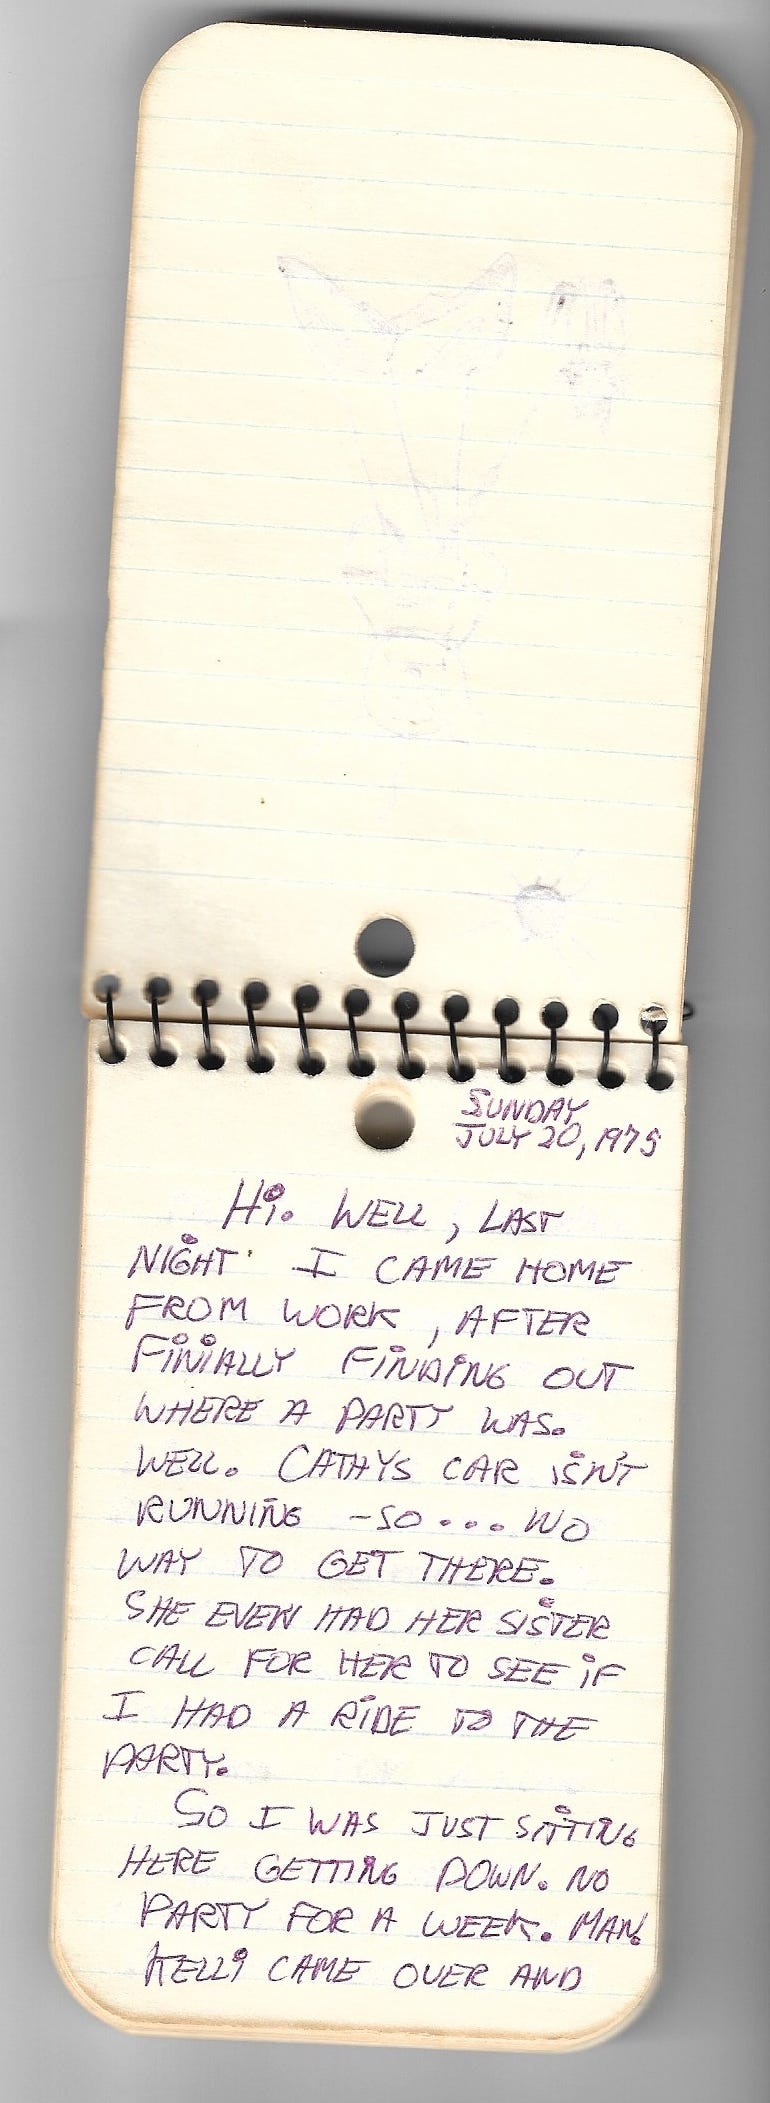 SUNDAY
JULY 20, 1975
Hi. WELL, LAST
NIGHT I CAME HOME
FROM WORK, AFTER
FINIALLY FINDING OUT
WHERE A PARTY WAS.
WELL. CATHYS CAR ISN'T
RUNNING -SO.... NO
WAY TO GET THERE.
SHE EVEN HAD HER SISTER
CALL FOR HER TO SEE iF
I HAD A RiDE TO THE
PARTY.
SO I WAS JUST SITTING
HERE GETTING DOWN. NO
PARTY FOR A WEEK. MAN.
KELLi CAME OVER AND